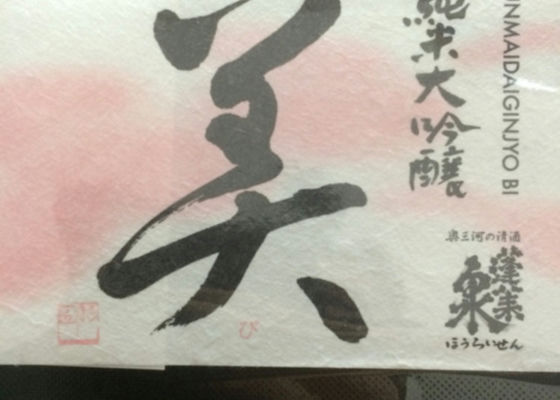 美
び
純米大吟醸
INMAIDAIGINJYO BI
奥三河の清酒
蓬莱
泉
ほうらいせん